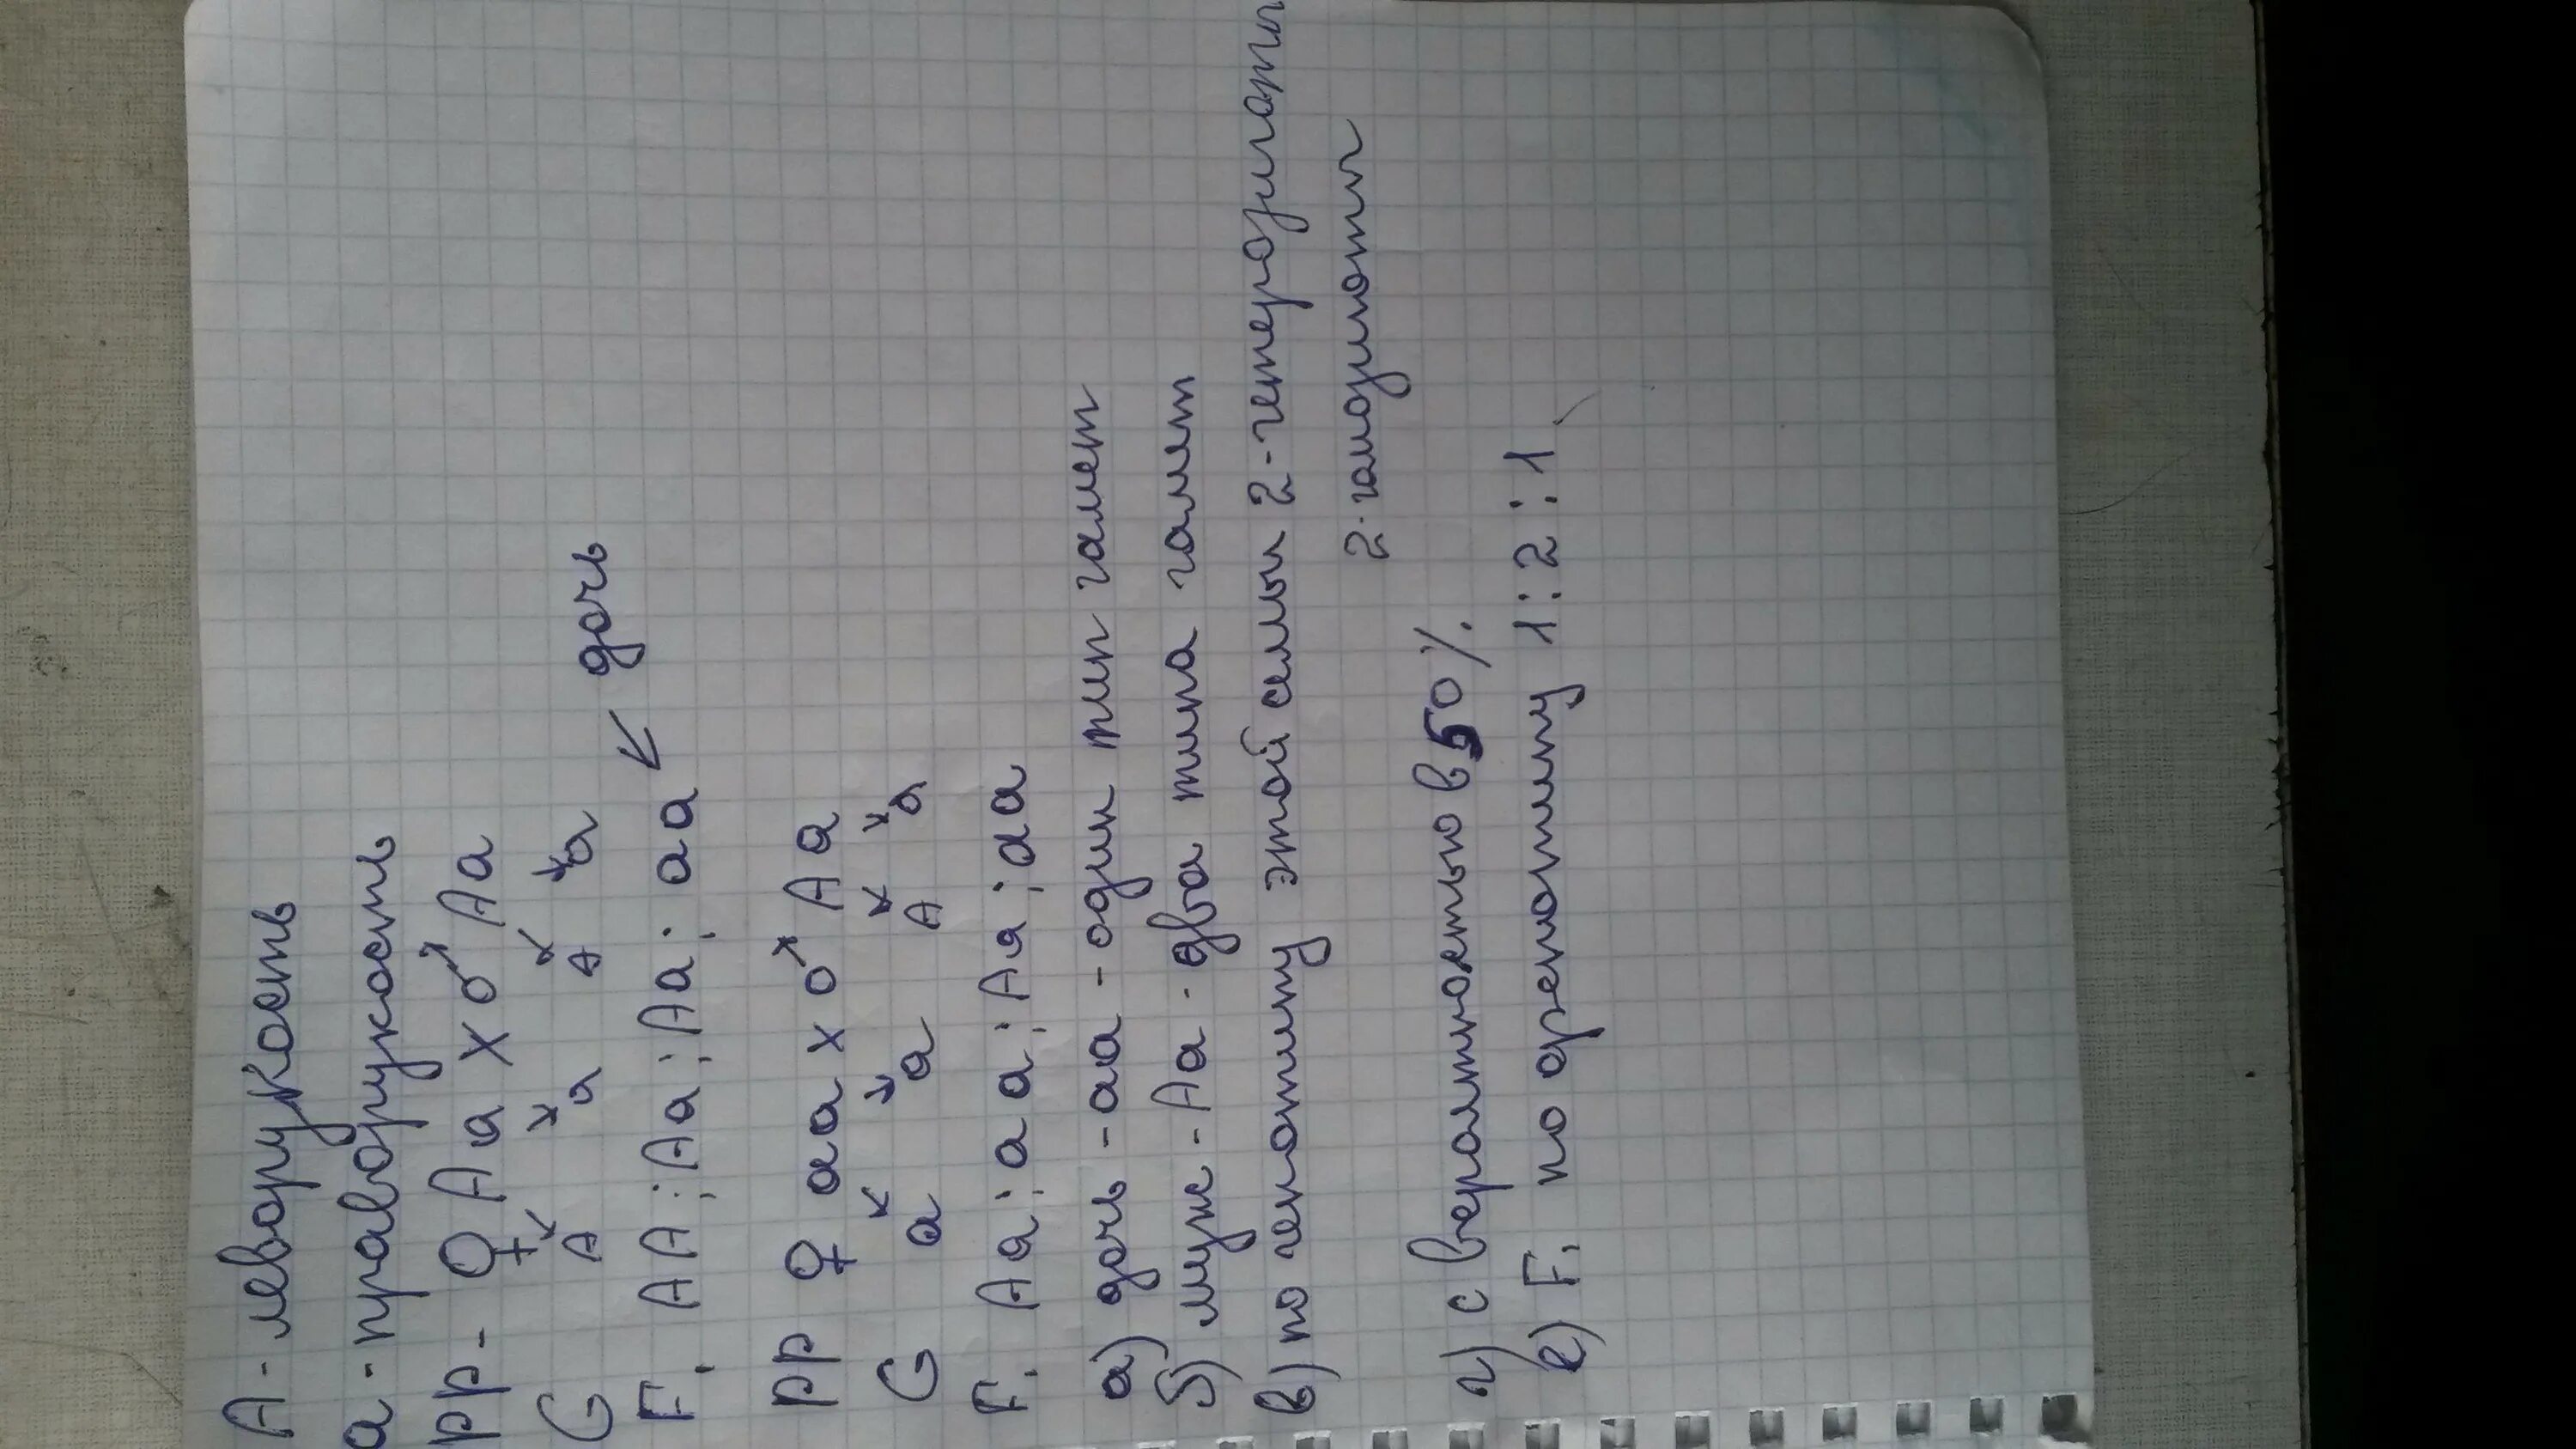 А - леворукость
а - праворукость
РР - ♀ Аа х ♂ Аа
G А а А а
F₁ АА ; Аа ; Аа ; аа ← дочь
РР ♀ аа х ♂ Аа
G а а А а
F₁ Аа ; аа ; Аа ; аа
а) дочь - аа - один тип гамет
б) муж - Аа - два типа гамет
в) по генотипу этой семьи 2 - гетерозиготы
2 - гомозиготы
г) с вероятностью в 50%
е) F₁ по фенотипу 1 : 2 : 1